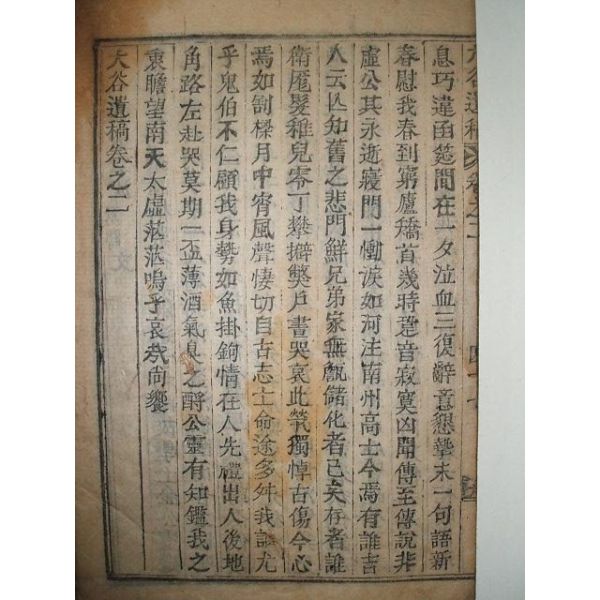 大谷遺稿 卷之二
息巧違函筵間在一夕泣血三復辭意懇摯末一句語新
春慰我春到窮廬矯首幾時跫音寂寞凶聞傳至傳說非
虛公其永逝寢門一慟淚如河注南州高士今焉有誰吉
人云亾知舊之悲門鮮兄弟家無甔儲化者已矣存者誰
衛嫠髮稚兒零丁攀擗獘戶晝哭哀此煢獨悼古傷今心
焉如割樑月中宵風聲悽切自古志士命途多舛我誰尤
乎鬼伯不仁顧我身勢如魚掛鉤情在人先禮出人後地
角路左赴哭莫期一盃薄酒氣臭之酹公靈有知鑑我之
衷瞻望南天太虛茫茫嗚乎哀哉尙饗
大谷遺稿卷之二